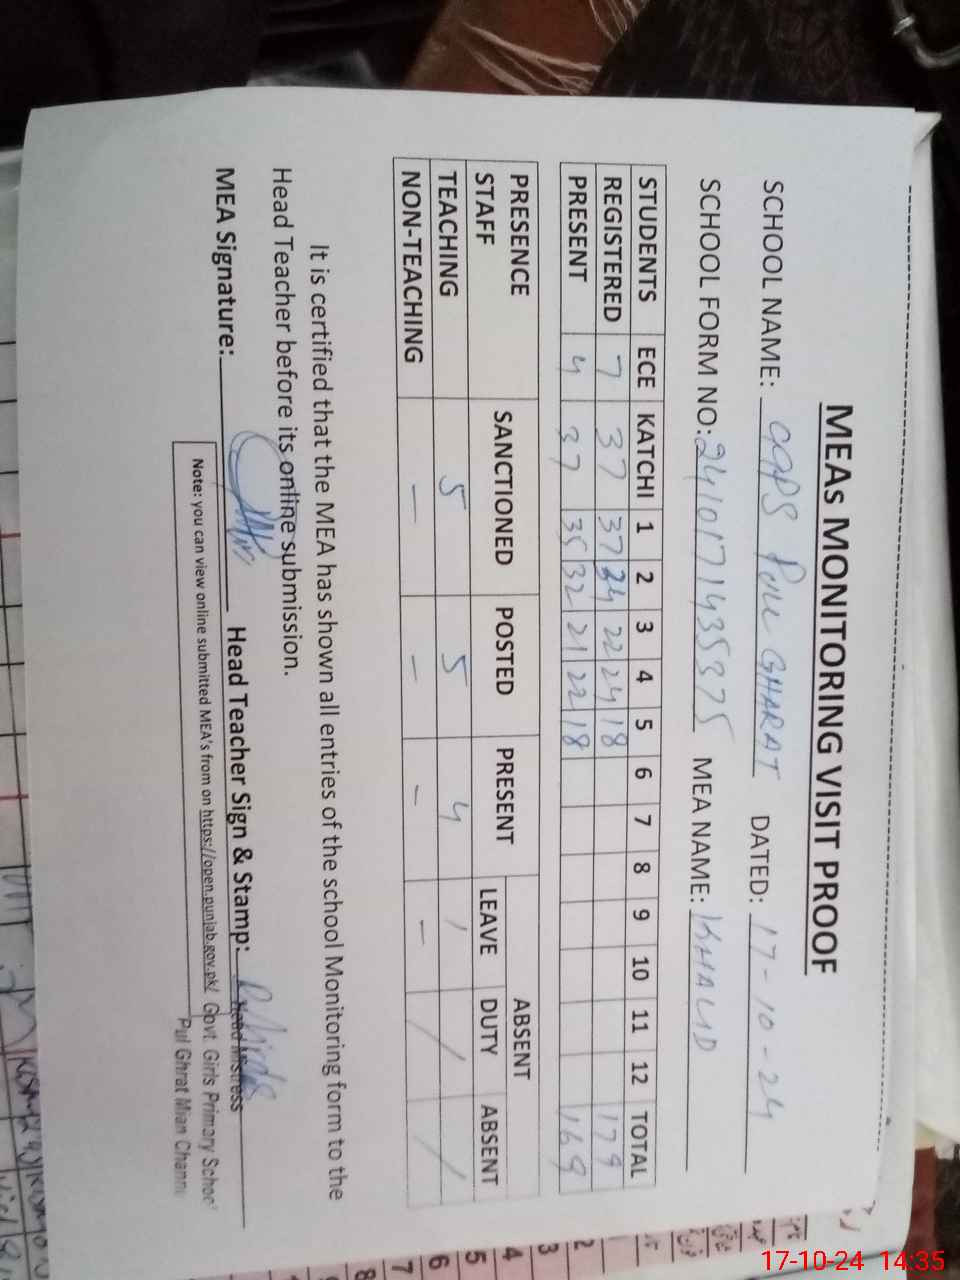 MEAs MONITORING VISIT PROOF
SCHOOL NAME: GGPS Pull GHARAT DATED: 17-10-24
SCHOOL FORM NO: MEA NAME: KHALID
STUDENTS ECE KATCHI 1 2 3 4 5 6 7 8 9 10 11 12 TOTAL
REGISTERED 7 37 37 34 22 24 18 179
PRESENT 4 37 35 32 21 22 18 169
PRESENCE SANCTIONED POSTED PRESENT ABSENT
STAFF LEAVE DUTY ABSENT
TEACHING 5 5 4 1 / /
NON-TEACHING — — — — / /
It is certified that the MEA has shown all entries of the school Monitoring form to the
Head Teacher before its online submission.
MEA Signature: Head Teacher Sign & Stamp:
Head Mistress
Note: you can view online submitted MEA's from on https://open.punjab.gov.pk/ Govt. Girls Primary School
Pul Ghrat Mian Channu
2
3
4
5
6
7
8
17-10-24 14:35